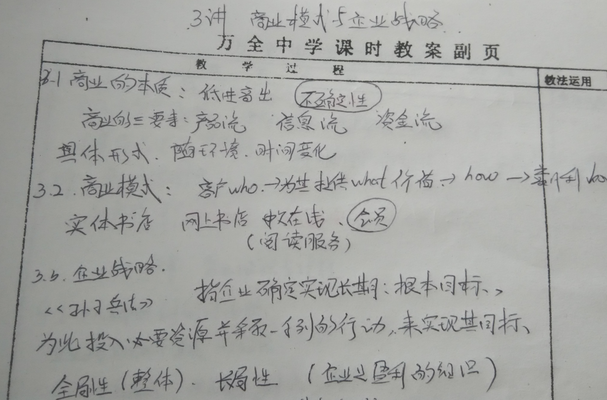 3讲 商业模式与企业战略
万全中学课时教案副页
教学过程 教法运用
3.1 商业的本质：低进高出 不确定性
商业的三要素：产品流 信息流 资金流
具体形式，随环境、时间变化
3.2. 商业模式：客户who→为其提供what价值→how→盈利
实体书店 网上书店 在线、会员
(阅读服务)
3.3. 企业战略.
《孙子兵法》 指企业确定实现长期：根本目标、
为此投入必要资源并争取一系列的行动，来实现其目标、
全局性(整体). 长局性 (企业是盈利的组织)